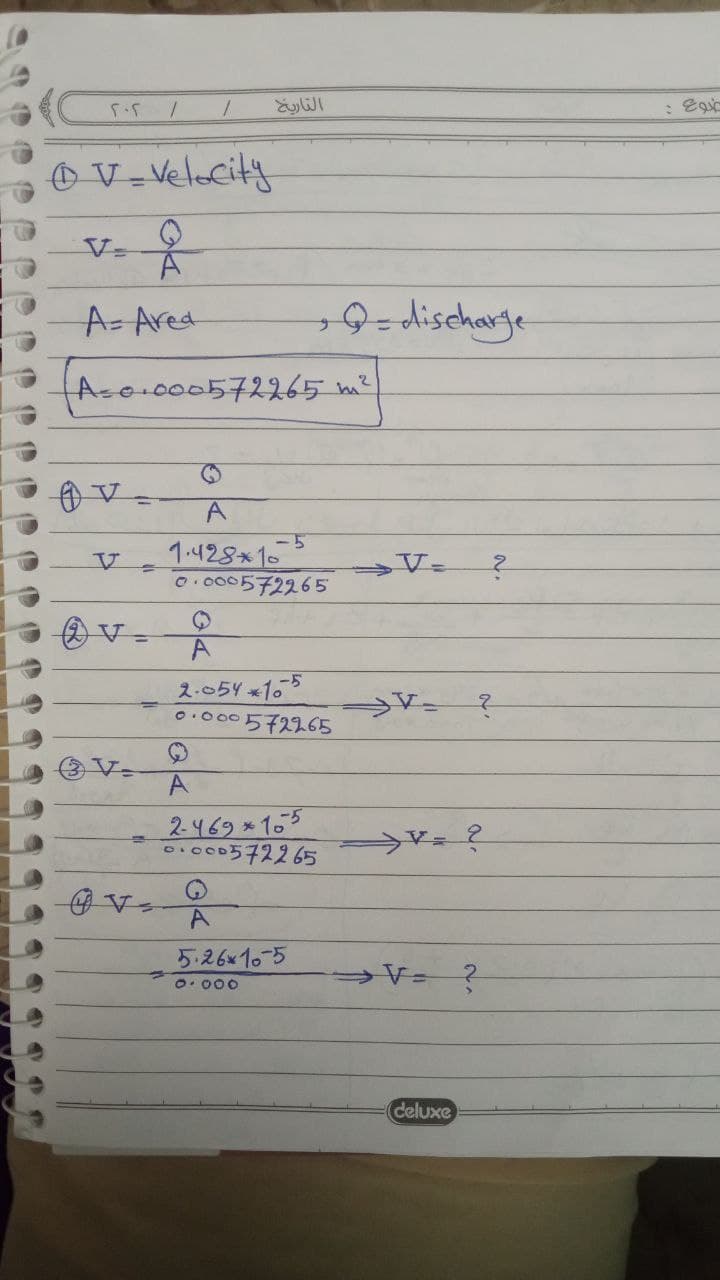 ٢٠٢ / / التاريخ ضوع :
① V = Velocity
V = Q / A
A = Area , Q = discharge
A = 0.000572265 m²
① V = Q / A
V = 1.428*10⁻⁵ / 0.000572265 → V = ?
② V = Q / A
= 2.054*10⁻⁵ / 0.000572265 ⟹ V = ?
③ V = Q / A
= 2.469*10⁻⁵ / 0.000572265 ⟹ V = ?
④ V = Q / A
= 5.26*10⁻⁵ / 0.000 ⟹ V = ?
deluxe